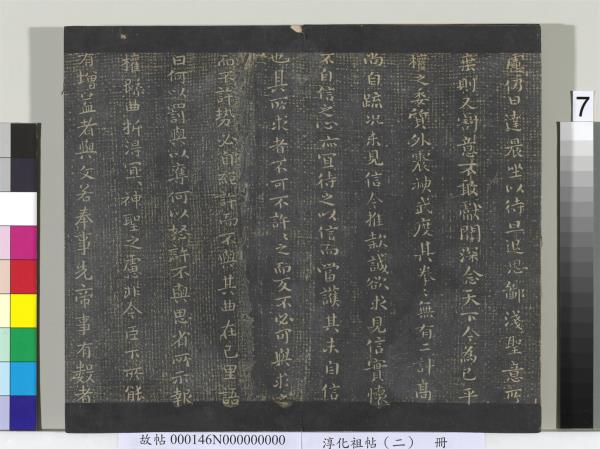 慮仍日達晨坐以待旦退思鄙淺聖意所
棄則又割意不敢獻聞深念天下今為已平
權之委質外震神武度其拳〻無有二計高
尚自疏況未見信今推款誠欲求見信實懷
不自信之心亦宜待之以信而當護其未自信
也其所求者不可不許〻之而反不必可與求之
而不許勢必自絕許而不與其曲在己里語
曰何以罰與以奪何以怒許不與思省所示報
權疏曲折得宜〻神聖之慮非今臣下所能
有增益昔與文若奉事先帝事有數者
7
故帖 000146N000000000 淳化祖帖(二) 冊